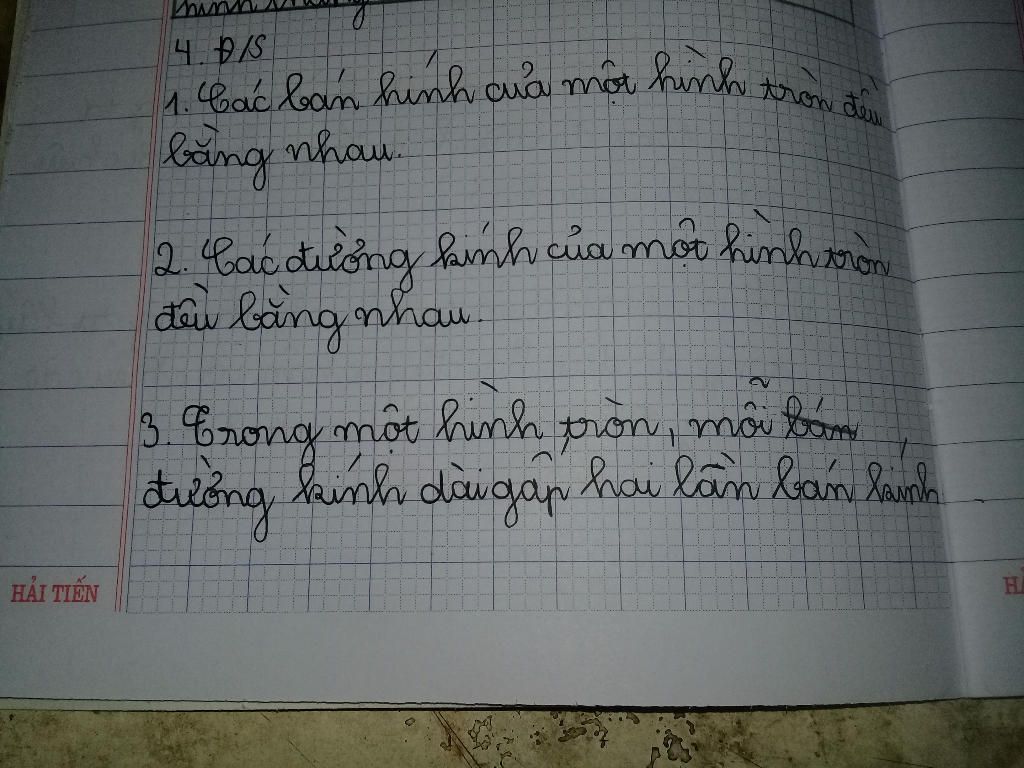 4. Đ/S
1. Các bán kính của một hình tròn đều
bằng nhau.
2. Các đường kính của một hình tròn
đều bằng nhau.
3. Trong một hình tròn, mỗi bán
đường kính dài gấp hai lần bán kính
HẢI TIẾN